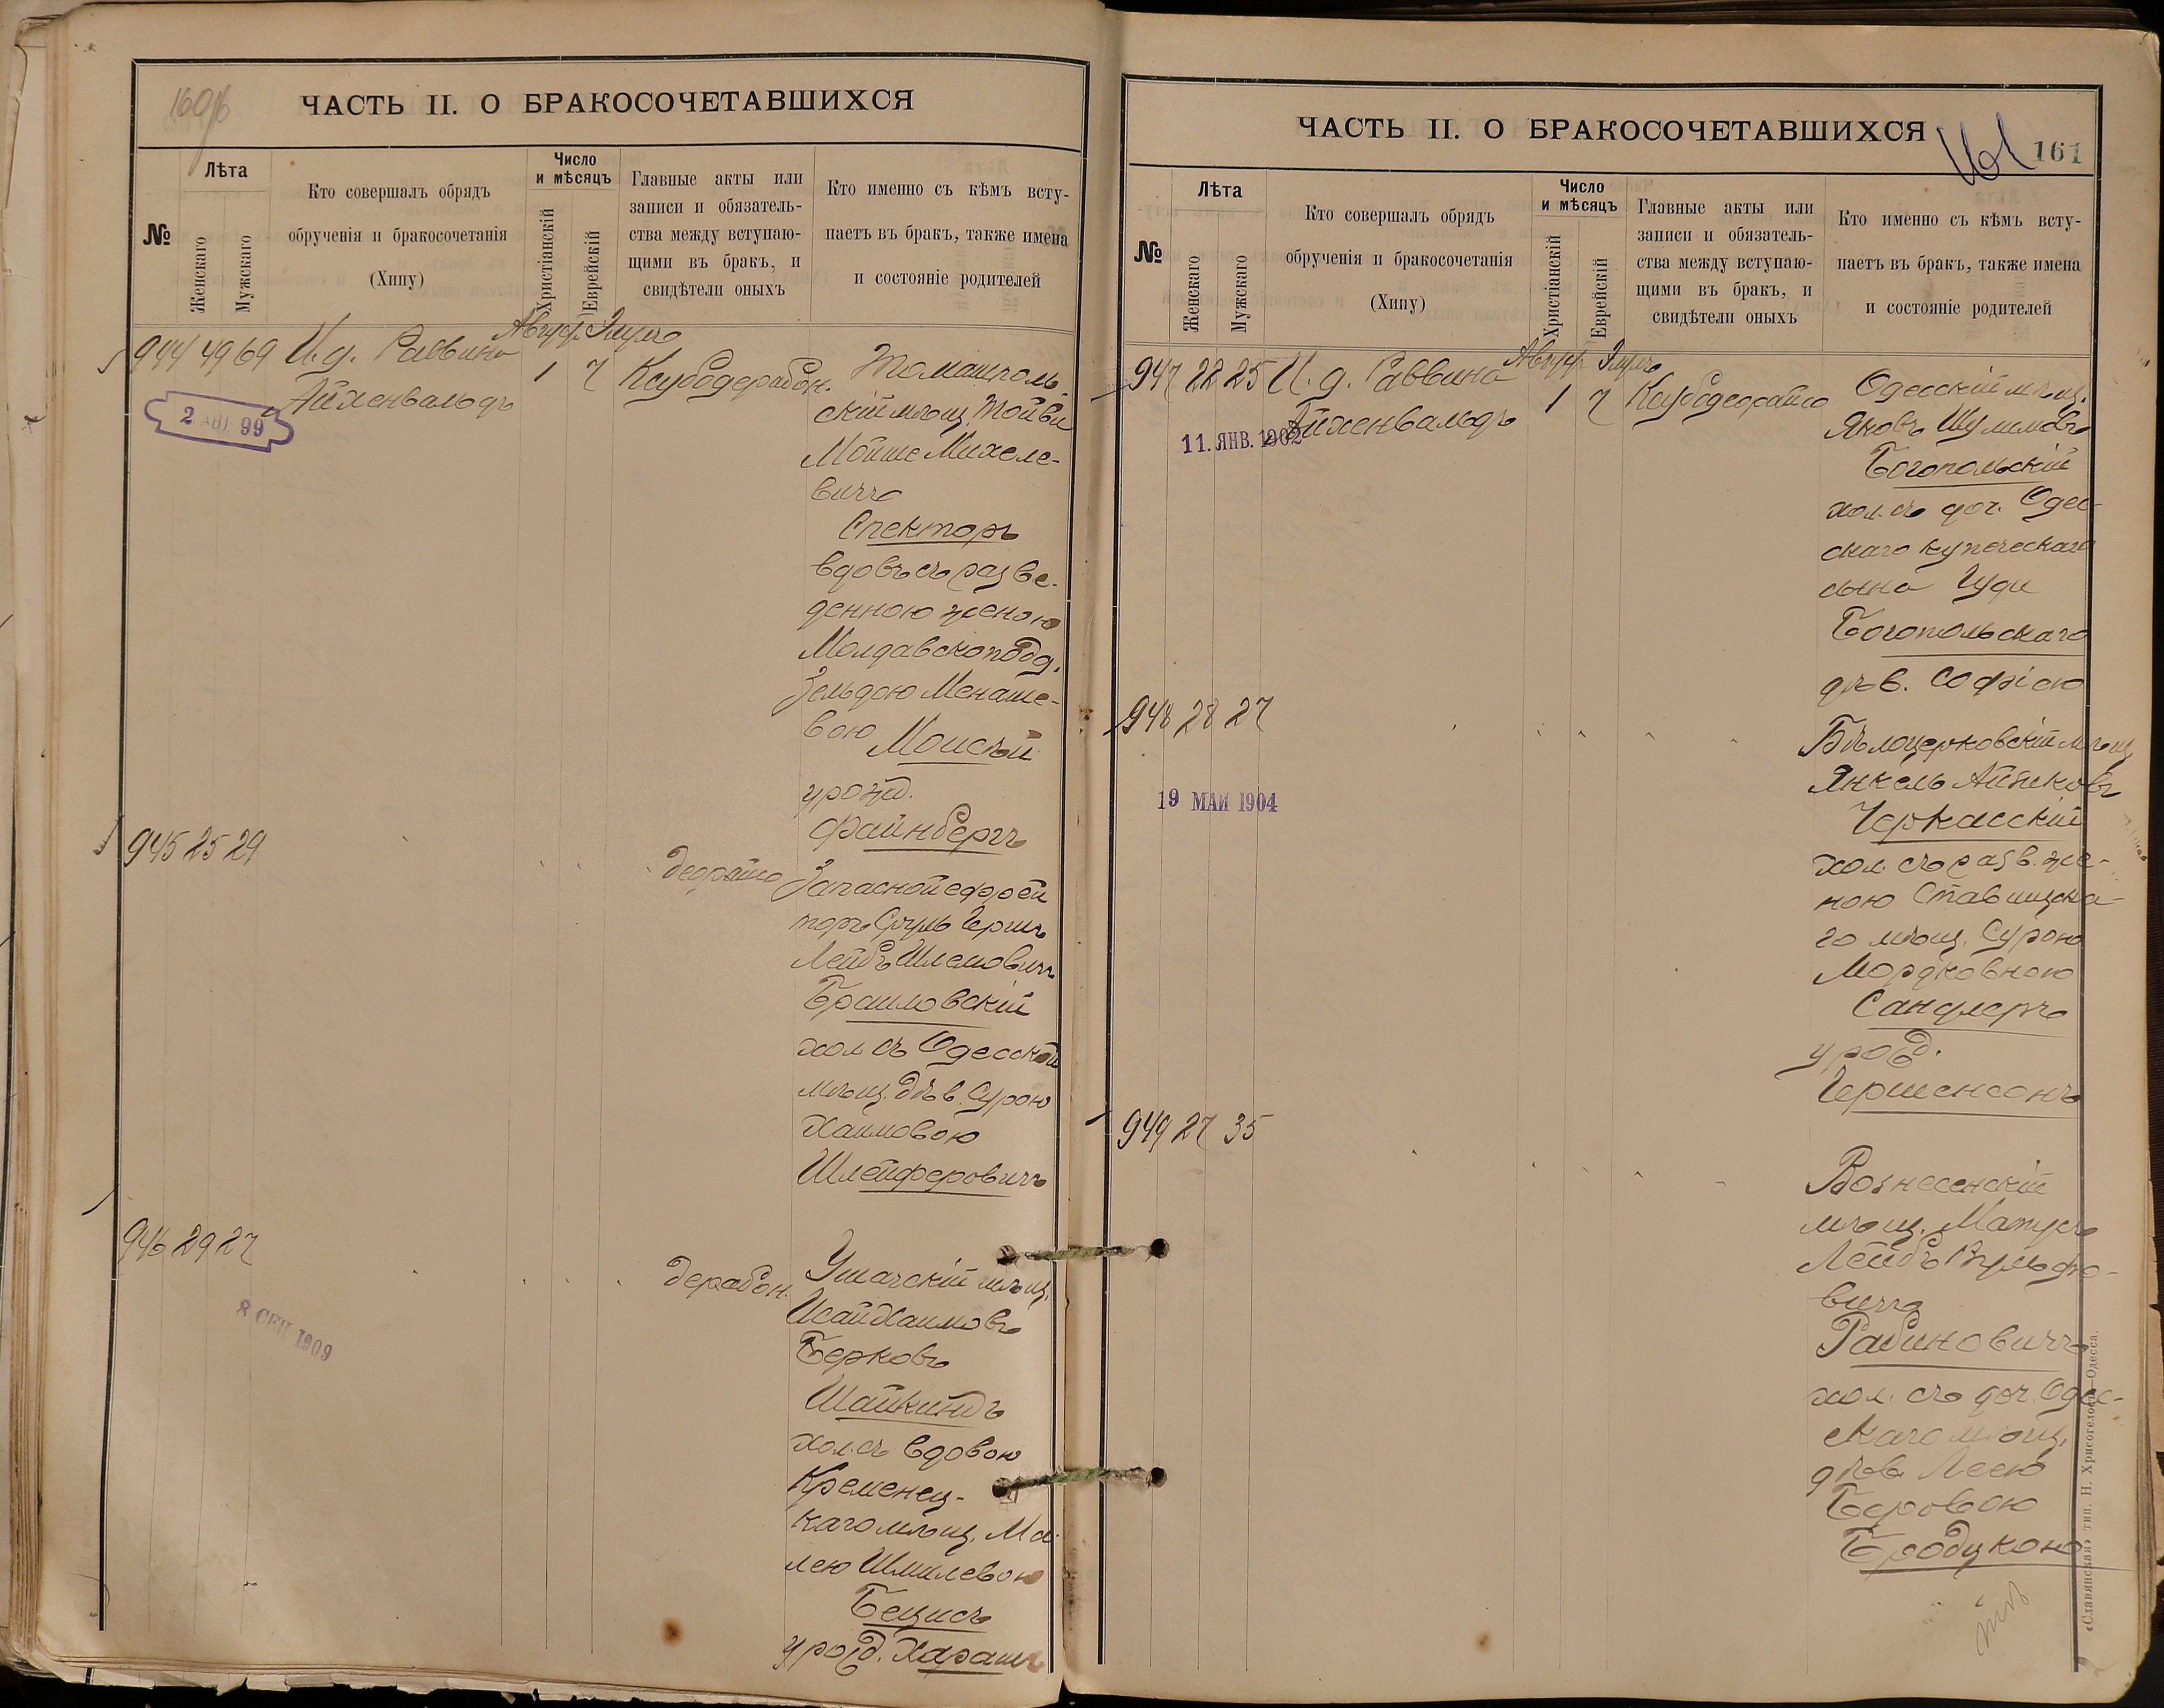 160
ЧАСТЬ II. О БРАКОСОЧЕТАВШИХСЯ
№
Лѣта
Женскаго
Мужскаго
Кто совершалъ обрядъ
обрученія и бракосочетанія
(Хипу)
Число
и мѣсяцъ
Христіанскій
Еврейскій
Главные акты или
записи и обязатель-
ства между вступаю-
щими въ бракъ, и
свидѣтели оныхъ
Кто именно съ кѣмъ всту-
паетъ въ бракъ, также имена
и состояніе родителей
944 49 69 И. д. Раввина
Айхенвальдъ
Август. Элулъ
1 7
2 АВГ 99
Томашполь-
скій мѣщ. Тойви
Мойше Михеле-
вичъ
Спекторъ
вдовъ съ разве-
денною женою
Молдавскопод.
Зельдою Менаше-
вою Моисѣй
урожд.
Файнбергъ
945 25 29
Запасной ефрей
торъ Сруль Гершъ
Лейбъ Шлемовичъ
Браиловскій
хол. съ Одесской
мѣщ. дѣв. Сурою
Хаимовою
Шлейферовичъ
946 29 27
8 СЕН 1909
дерабон.
мѣщ.
Исай Хаимовъ
Берковъ
Шайкиндъ
хол. съ вдовою
Кременец-
каго мѣщ. Ма-
лею Шмилевою
Бецисъ
урожд. Харашъ
ЧАСТЬ II. О БРАКОСОЧЕТАВШИХСЯ
161
161
№
Лѣта
Женскаго
Мужскаго
Кто совершалъ обрядъ
обрученія и бракосочетанія
(Хипу)
Число
и мѣсяцъ
Христіанскій
Еврейскій
Главные акты или
записи и обязатель-
ства между вступаю-
щими въ бракъ, и
свидѣтели оныхъ
Кто именно съ кѣмъ всту-
паетъ въ бракъ, также имена
и состояніе родителей
947 22 25 И. д. Раввина
Айхенвальдъ
Август. Элулъ
1 7
11. ЯНВ. 1902
Одесскій мѣщ.
Яковъ Шулимовъ
Богопольскій
хол. съ доч. Одес-
скаго купеческаго
сына Іуди
Богопольскаго
дѣв. Софіею
948 28 27
19 МАИ 1904
Бѣлоцерковскій мѣщ
Янкель Айзиковъ
Черкасскій
хол. съ разв. же-
ною Ставищска-
го мѣщ. Сурою
Мордковною
Сандлеръ
урожд.
Гершенсонъ
949 27 35
Вознесенскій
мѣщ. Матусъ
Лейбъ Вульфо-
вичъ
Рабиновичъ
хол. съ доч. Одес-
скаго мѣщ.
дѣв. Леею
Беровою
Бродцкою
«Славянская» тип. Н. Хрисогелосъ—Одесса.